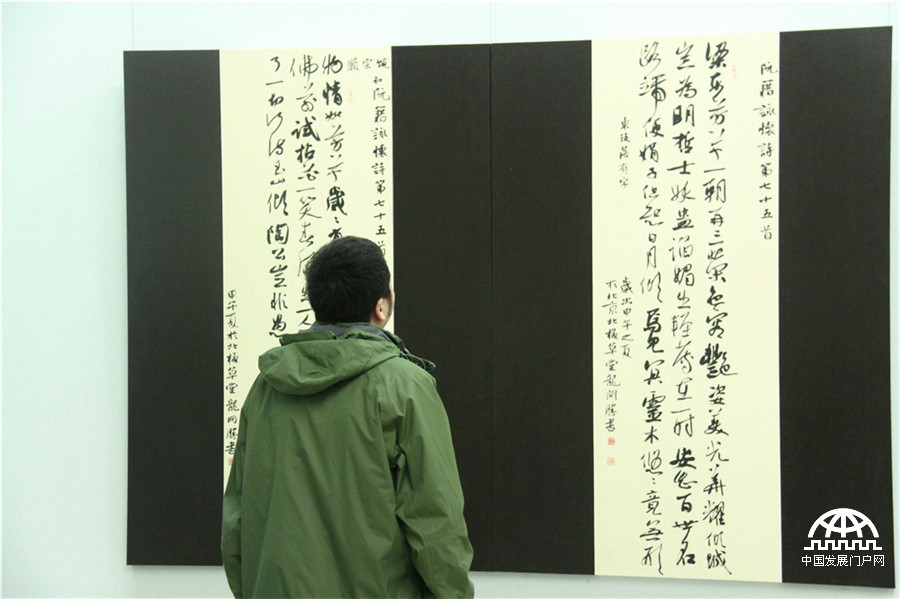 阮籍詠懷詩第七十五首
梁東芳草一朝再三榮色容豔姿美光華耀傾城
豈為明哲士妖蠱諂媚生輕薄在一時安知百世名
路端便娟子但恐日月傾焉見冥靈木悠〻竟無形
東後落有字
歲次甲午之夏
於北京北極草堂龍開勝書
和阮籍詠懷詩第七十五首
物情如芳草歲〻
佛前試拈花一笑春風生
了一切 玉山傾陶公豈非愚
甲午夏於北極草堂龍開勝書
中国发展门户网